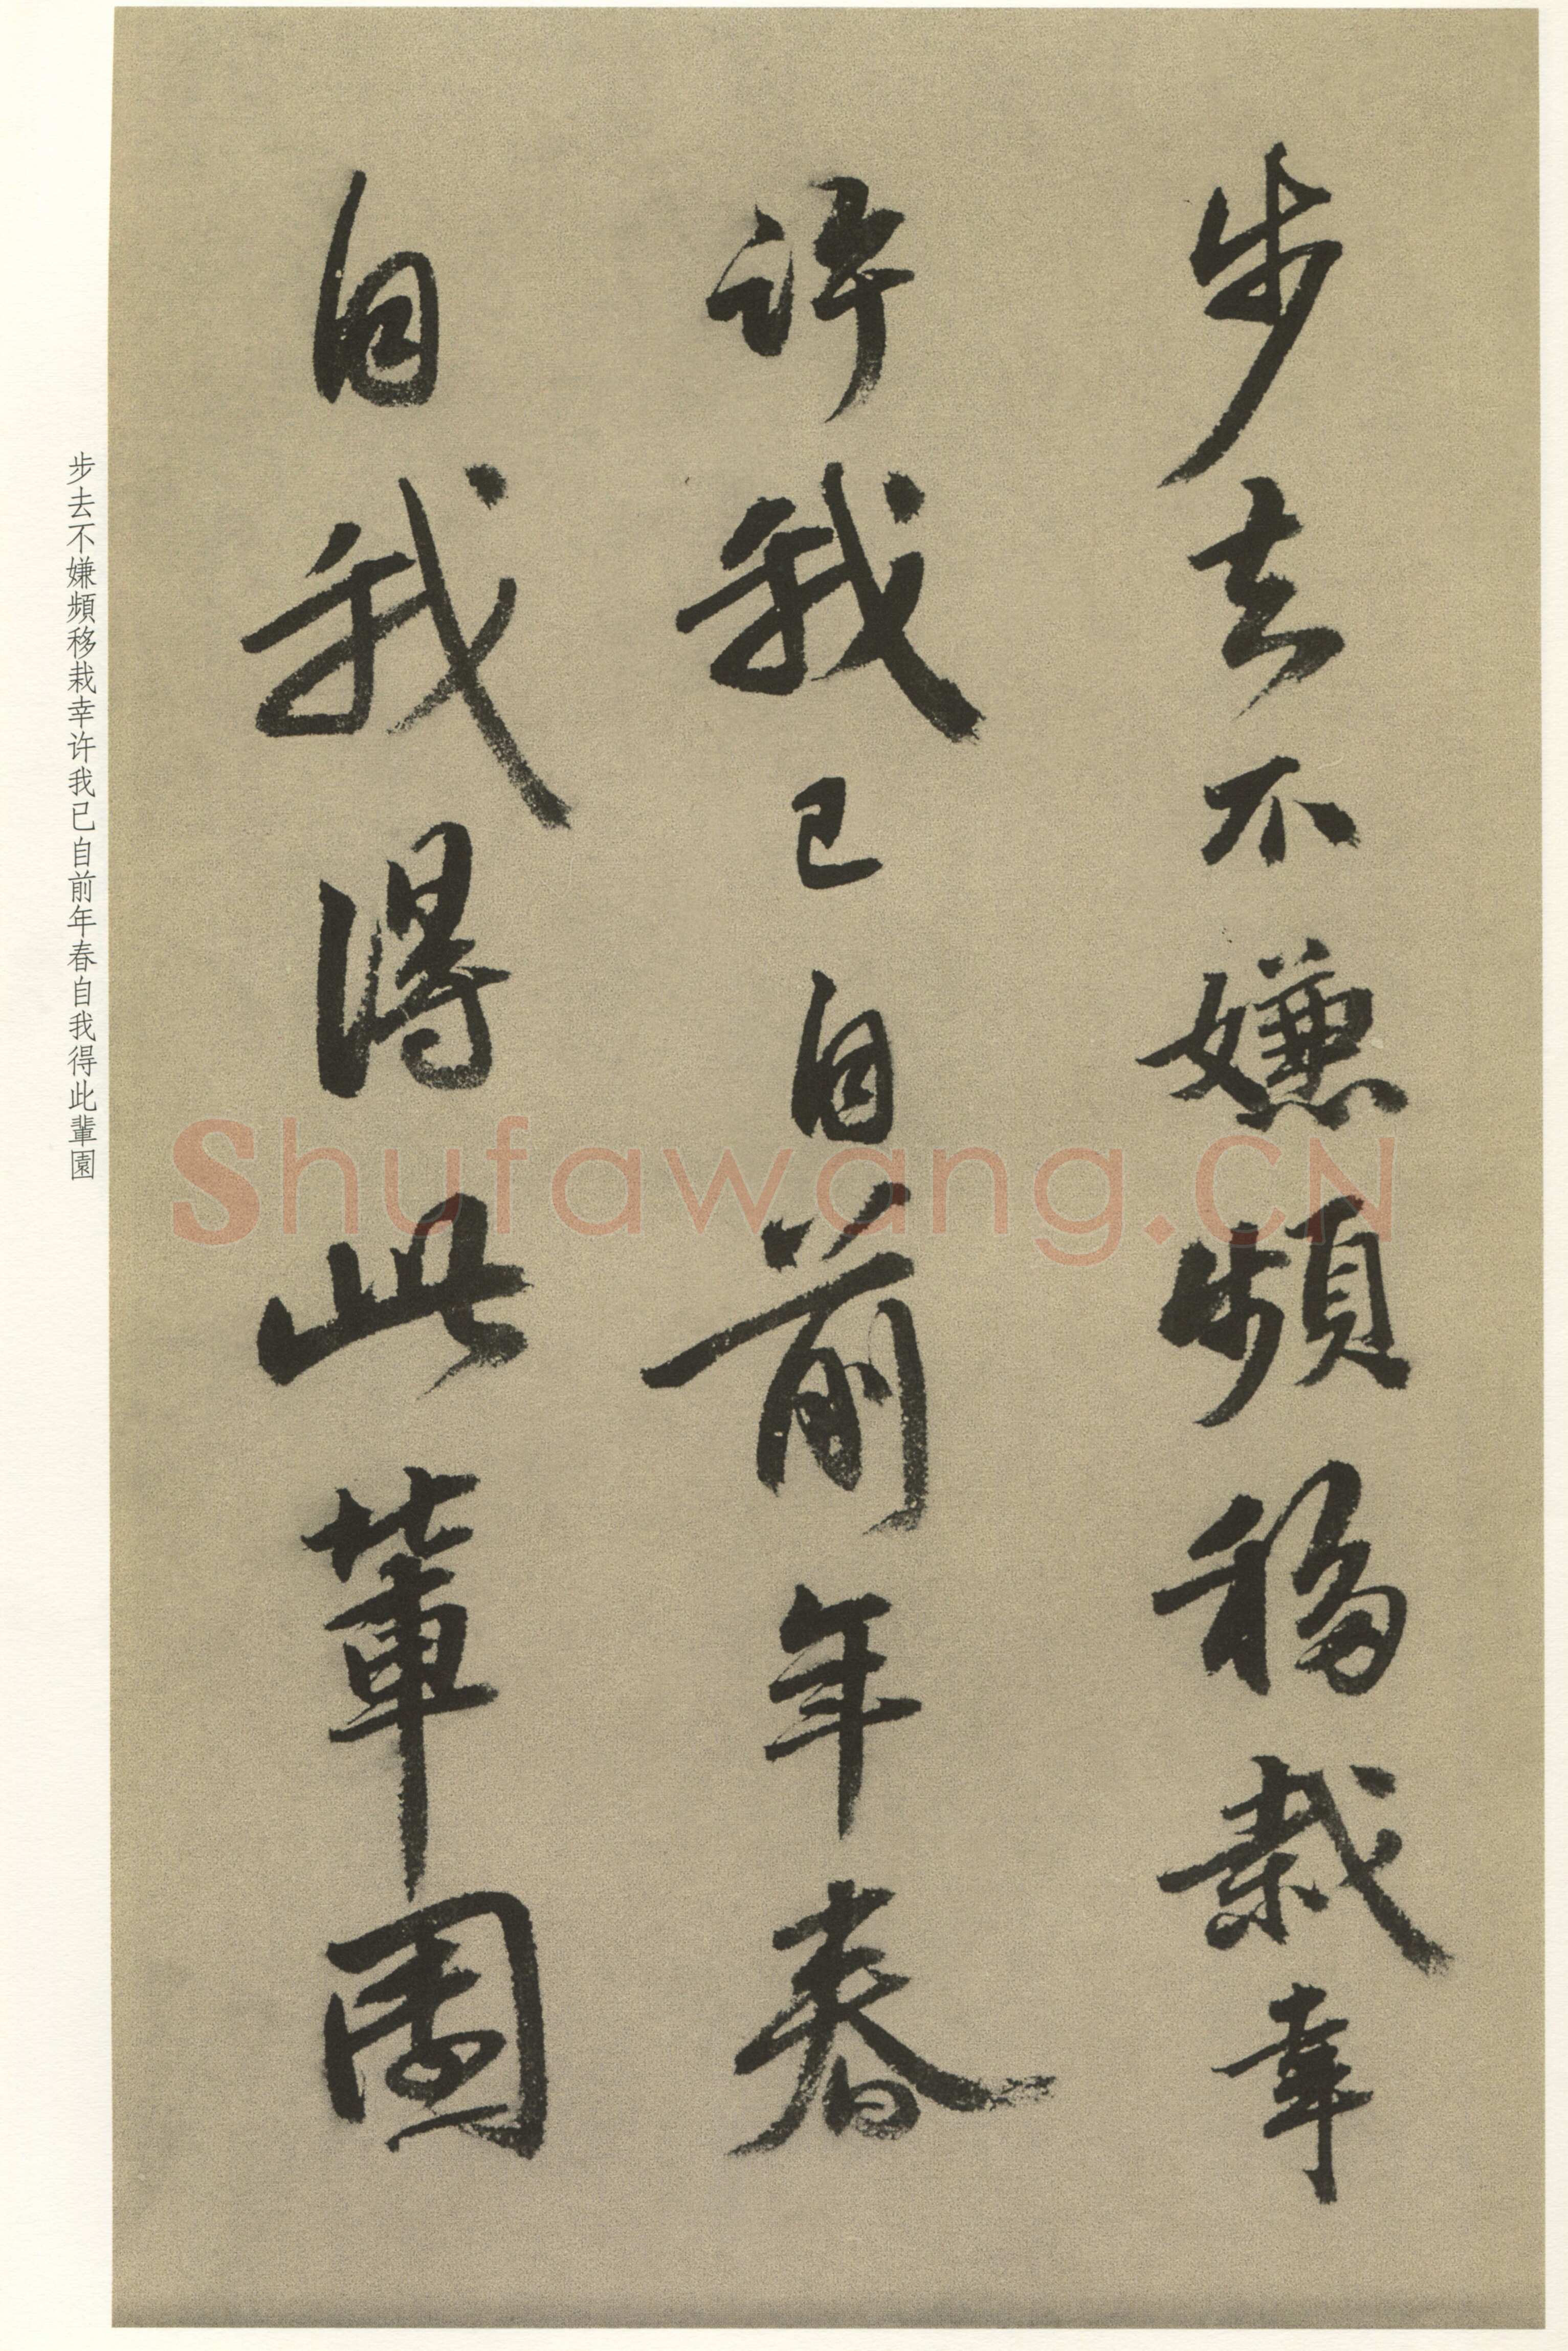 步去不嫌頻移栽幸
許我已自前年春
自我得此輩園
步去不嫌頻移栽幸许我已自前年春自我得此輩園
Shufawang.CN